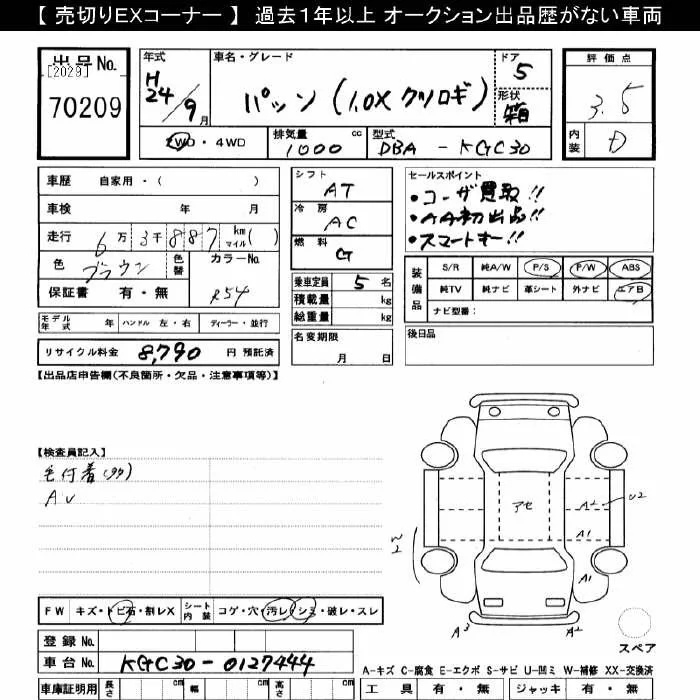 【 売切りEXコーナー 】 過去1年以上 オークション出品歴がない車両
出品No.
[2029]
70209
年式
H
24/9月
車名・グレード
パッソ (1.0X クツロギ)
ドア
5
形状
箱
評価点
3.5
内装
D
2WD・4WD
排気量 cc
1000
型式
DBA - KGC30
車歴 自家用・( )
車検 年 月
走行 6万3千887 km マイル( )
色 ブラウン 色替 カラーNo.
保証書 有・無 R54
シフト
AT
冷房
AC
燃料
G
乗車定員 5 名
積載量 kg
総重量 kg
セールスポイント
・ユーザ買取!!
・AA初出品!!
・スマートキー!!
装備品
S/R 純A/W P/S P/W ABS
純TV 純ナビ 革シート 外ナビ エアB
ナビ型番:
モデル年式 年 ハンドル 左・右 ディーラー・並行
名変期限
月 日
後日品
リサイクル料金 8,790 円 預託済
【出品店申告欄(不良箇所・欠品・注意事項等)】
【検査員記入】
毛付着(タタ)
AU
アセ
A2 U2
A1
W2
A1
A3 A2
スペア
FW キズ・トビ石・割レX シート内装 コゲ・穴・汚レ・シミ・破レ・スレ
登録No.
車台No. KGC30-0127444
A-キズ C-腐食 E-エクボ S-サビ U-凹ミ W-補修 XX-交換済
車庫証明用 長さ cm 幅 cm 高さ cm
工具 有・無 ジャッキ 有・無